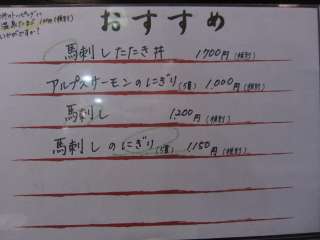 おすすめ
温泉たまご
いかがですか!
馬刺したたき丼 1700円(税別)
アルプスサーモンのにぎり(5貫) 1,000円(税別)
馬刺し 1,200円(税別)
馬刺しのにぎり(5貫) 1150円(税別)